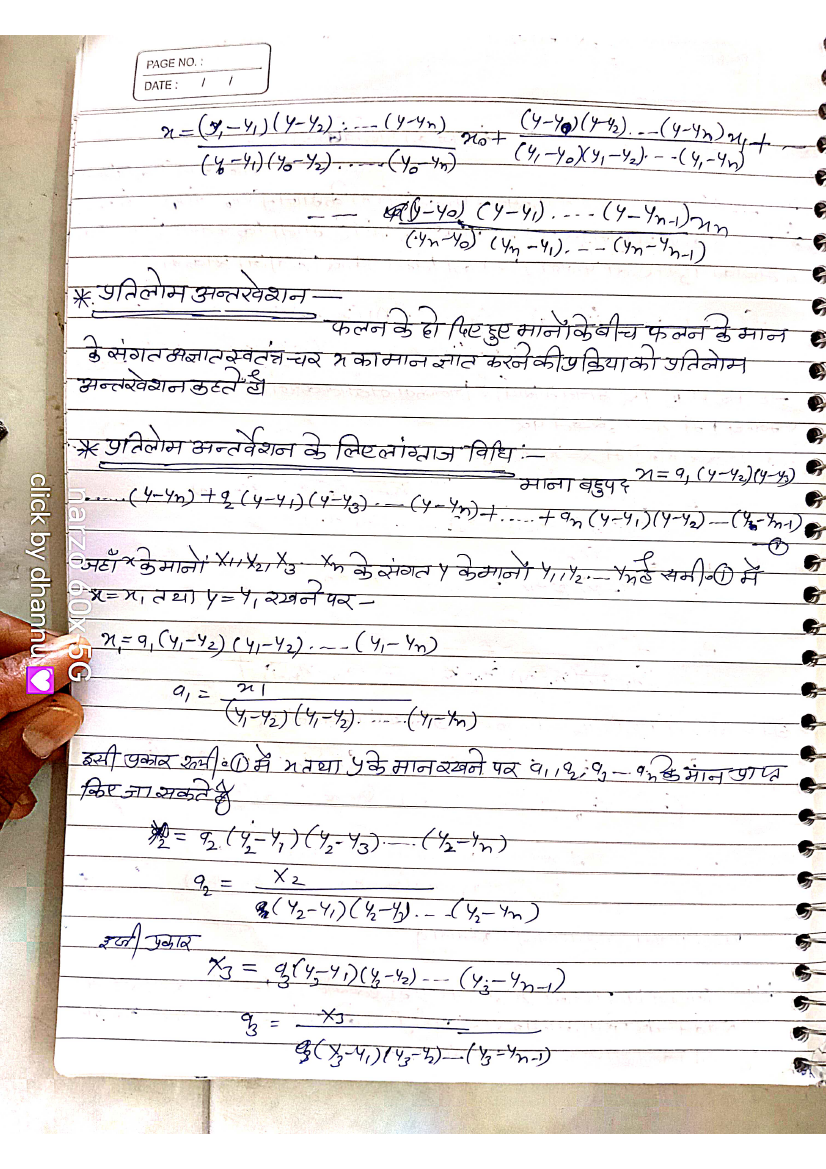 PAGE NO. :
DATE : / /
x = (y-y₁)(y-y₂).....(y-yn) / (y₀-y₁)(y₀-y₂)......(y₀-yn) x₀ + (y-y₀)(y-y₂)....(y-yn)x₁ / (y₁-y₀)(y₁-y₂)...(y₁-yn) + ----
--- (y-y₀)(y-y₁).....(y-yn-1)xn / (yn-y₀)(yn-y₁)....(yn-yn-1)
* प्रतिलोम अन्तरवेशन —
फलन के दो दिए हुए मानों के बीच फलन के मान
के संगत अज्ञात स्वतंत्र चर x का मान ज्ञात करने की प्रक्रिया को प्रतिलोम
अन्तरवेशन कहते है।
* प्रतिलोम अन्तर्वेशन के लिए लांग्राज विधि :—
माना बहुपद x = a₁ (y-y₂)(y-y₃)
......(y-yn) + a₂ (y-y₁)(y-y₃)....(y-yn)+.....+ an (y-y₁)(y-y₂)---(y-yn-1)
—①
जहाँ x के मानों x₁, x₂, x₃... xn के संगत y के मानों y₁, y₂...yn है समी.① में
x = x₁ तथा y = y₁ रखने पर —
x₁ = a₁ (y₁-y₂)(y₁-y₂)....(y₁-yn)
a₁ = x₁ / (y₁-y₂)(y₁-y₂)......(y₁-yn)
इसी प्रकार समी.① में x तथा y के मान रखने पर a₁, a₂, a₃ --- an के मान प्राप्त
किए जा सकते है
x₂ = a₂ (y₂-y₁)(y₂-y₃).....(y₂-yn)
a₂ = x₂ / (y₂-y₁)(y₂-y₃)...(y₂-yn)
इसी प्रकार
x₃ = a₃(y₃-y₁)(y₃-y₂)....(y₃-yn-1)
a₃ = x₃ / (y₃-y₁)(y₃-y₂)...(y₃-yn-1)
narzo 60x 5G
click by dhannu